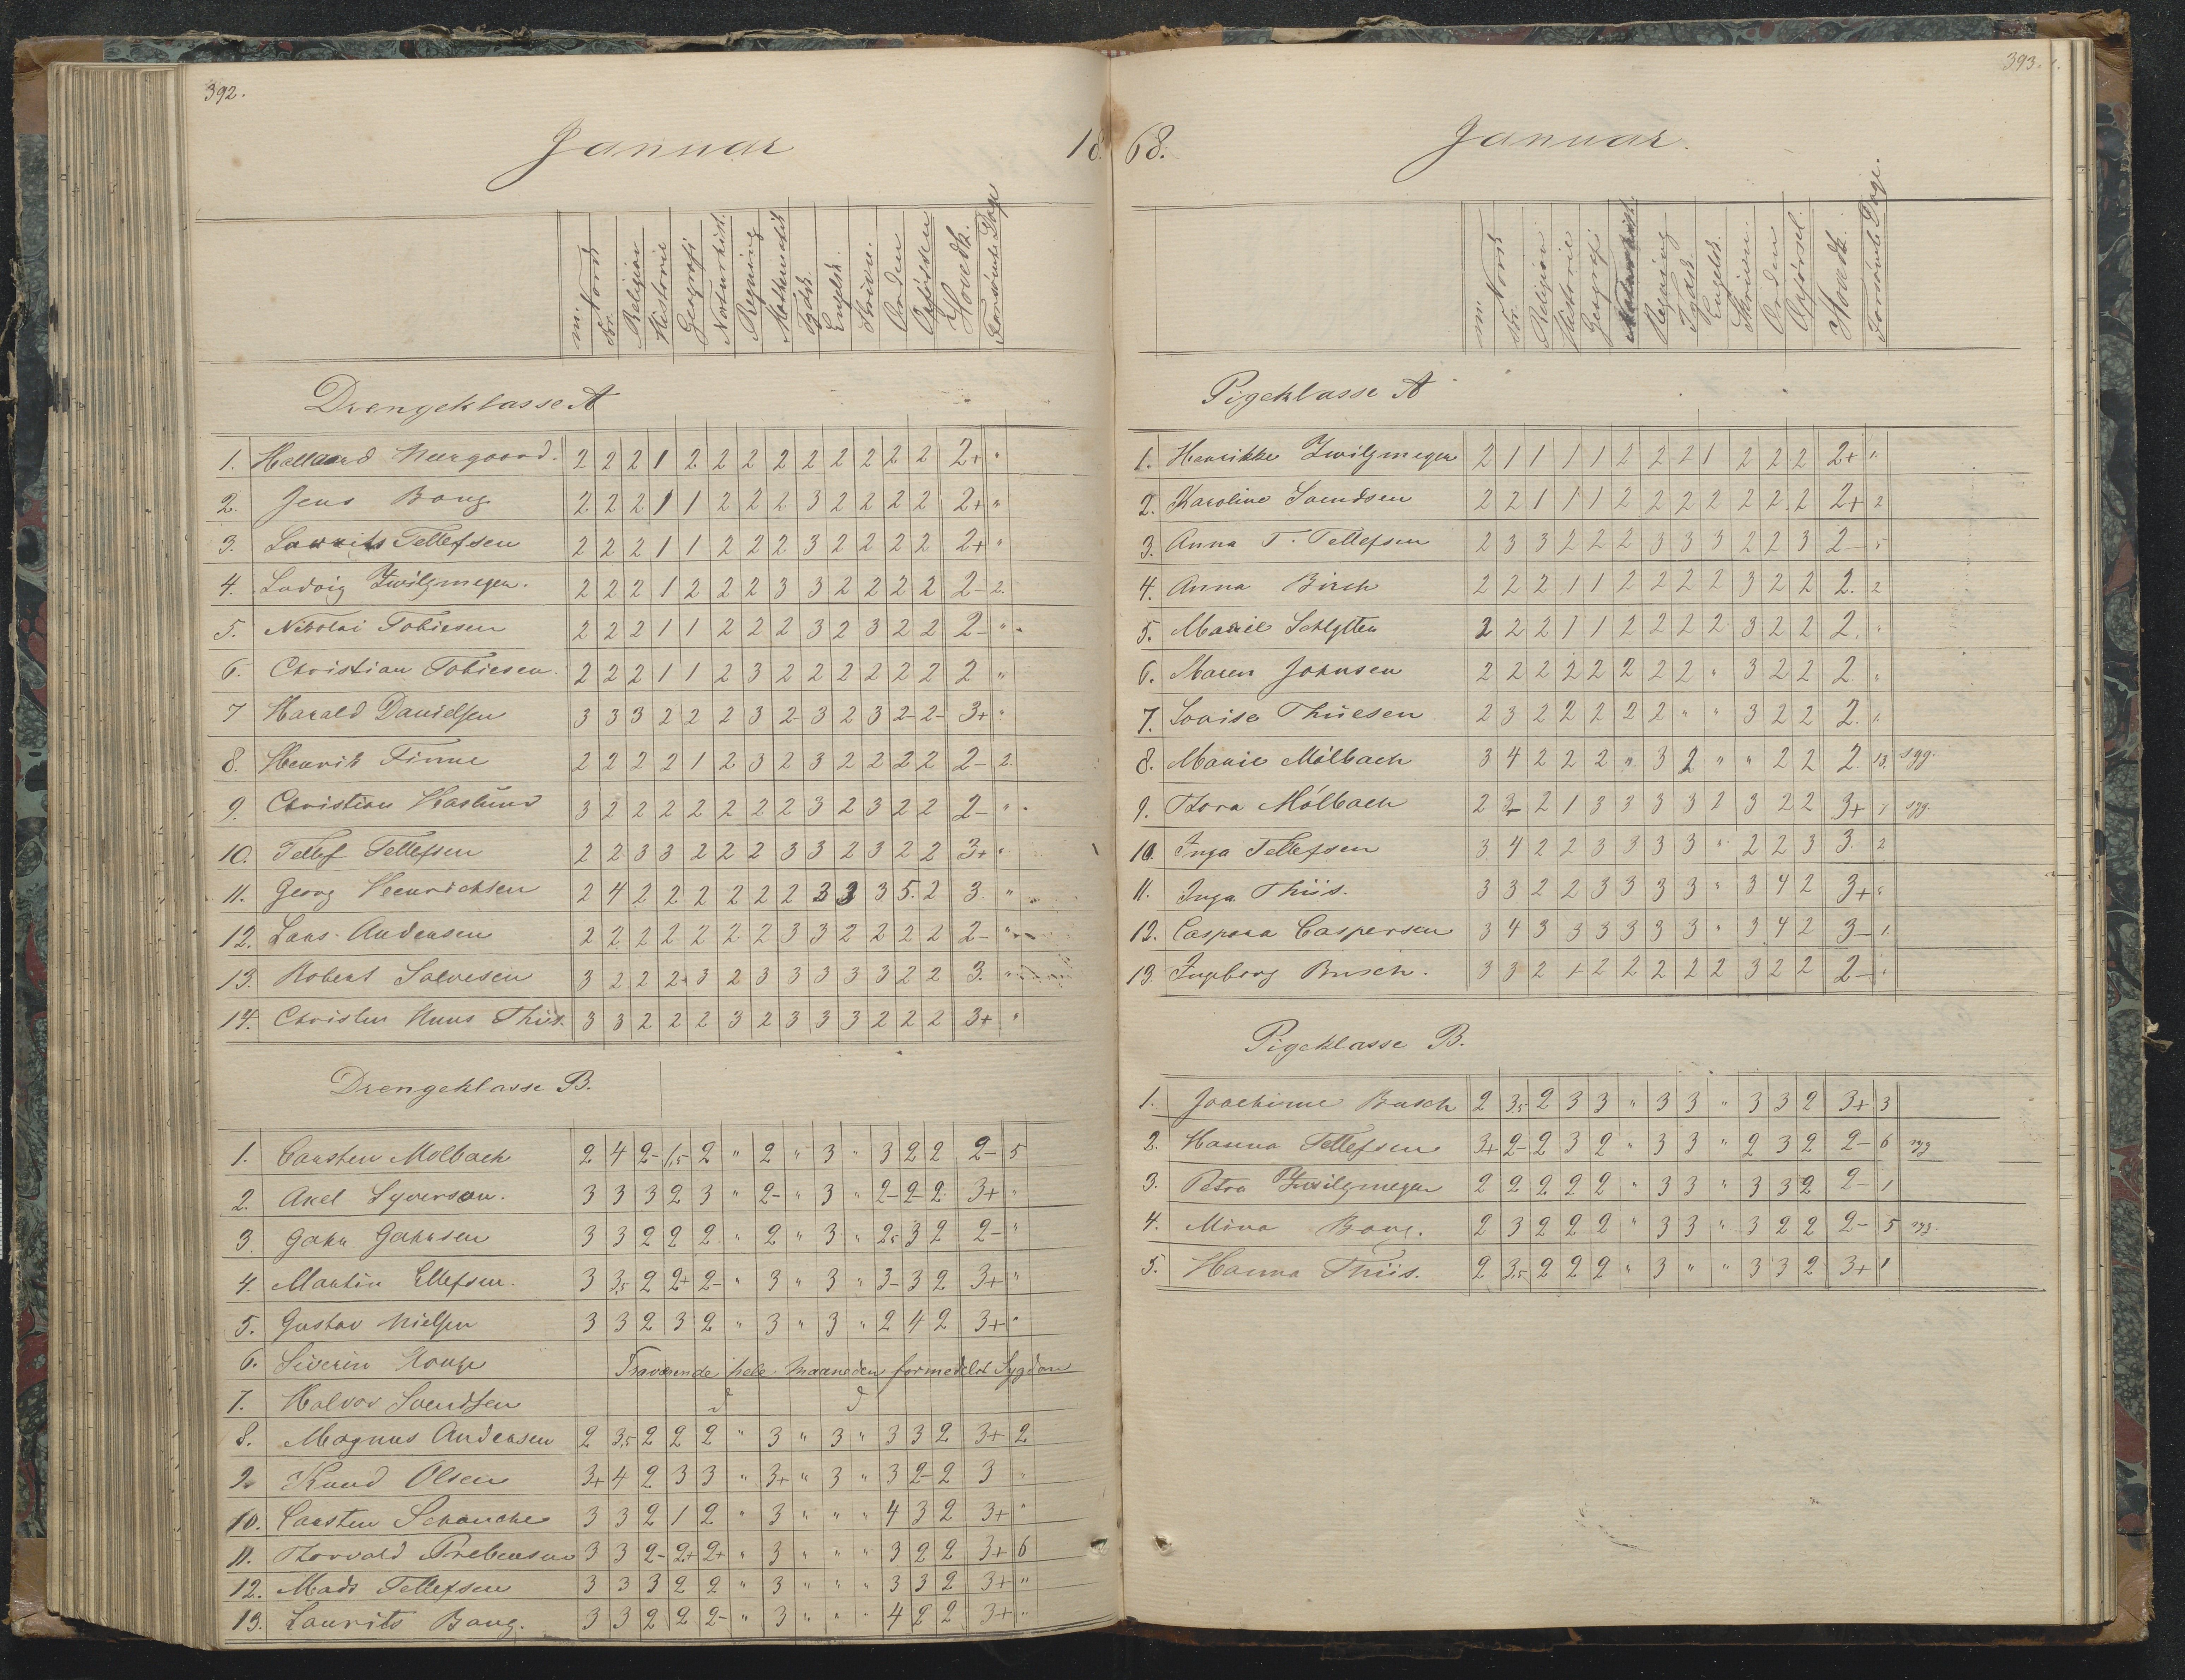 392.
Januar 18
m. Norsk skr. Religion Historie Geografi Naturhist. Regning Mathematik Tydsk Engelsk. Skrivn. Orden Opførsel Hovedk. Forsømte Dage
Drengeklasse A
1. Hallaard Neergaard. 2 2 2 1 2 2 2 2 2 2 2 2 2 2+ "
2. Jens Bang 2 2 2 1 1 2 2 2 3 2 2 2 2 2+ "
3. Laurits Tellefsen 2 2 2 1 1 2 2 2 3 2 2 2 2 2+ "
4. Ludvig Zwilgmeyer. 2 2 2 1 2 2 2 3 3 2 2 2 2 2- 2.
5. Nikolai Tobiesen 2 2 2 1 1 2 2 2 3 2 3 2 2 2- "
6. Christian Tobiesen. 2 2 2 1 1 2 3 2 2 2 2 2 2 2 "
7 Harald Danielsen 3 3 3 2 2 2 3 2- 3 2 3 2- 2- 3+ "
8. Henrik Finne 2 2 2 2 1 2 3 2 3 2 2 2 2 2- 2.
9. Christian Haslund 3 2 2 2 2 2 2 2 3 2 3 2 2 2- "
10. Tellef Tellefsen 2 2 3 3 2 2 2 3 3 2 3 2 2 3+ "
11. Georg Heenrichsen 2 4 2 2 2 2 2 2 3 3 3 5. 2 3. "
12. Lars Andersen 2 2 2 2 2 2 2 3 3 2 2 2 2 2- "
13. Robert Salvesen 3 2 2 2 3 2 3 3 3 3 3 2 2 3. "
14. Christen Nuus Thiis. 3 3 2 2 2 3 2 3 3 3 2 2 2 3+ "
Drengeklasse B.
1. Carsten Mølbach 2 4 2- 1,5 2 " 2 " 3 " 3 2 2 2- 5
2. Axel Syversen. 3 3 3 2 3 " 2- " 3 " 2- 2- 2 3+ "
3. Jahn Jahnsen 3 3 2 2 2 " 2 " 3 " 2,5 3 2 2- "
4. Martin Ellefsen. 3 3,5 2 2+ 2- " 3 " 3 " 3- 3 2 3+ "
5. Gustav Nielsen 3 3 2 3 2 " 3 " 3 " 2 4 2 3+ "
6. Siverin Fraværende hele Maaneden formedelst Sygdom
7. Halvor Svendsen
8. Magnus Andersen 2 3,5 2 2 2 " 3 " 3 " 3 3 2 3+ 2
9. Knud Olsen 3+ 4 2 3 3 " 3+ " 3 " 3 2- 2 3 "
10. Carsten Schanche 3 3 2 1 2 " 3 " " " 4 3 2 3+ "
11. Thorvald Prebensen 3 3 2- 2+ 2+ " 3 " " " 3 2 2 3+ 6
12. Mads Tellefsen 3 3 3 2 2 " 3 " " " 3 3 2 3+ "
13. Laurits Bang. 3 3 2 2 2- " 3 " " " 4 2 2 3+ "
393.
68. Januar.
m. Norsk skr. Religion Historie Geografi Regning Tydsk Engelsk. Skrivn. Orden Opførsel. Hovedk. Forsømte Dage.
Pigeklasse A
1. Henrikke Zwilgmeyer 2 1 1 1 1 2 2 2 1 2 2 2 2+ 1.
2. Karoline Svendsen 2 2 1 1 1 2 2 2 2 2 2 2 2+ 2
3. Anna T. Tellefsen 2 3 3 2 2 2 3 3 3 2 2 3 2- "
4. Anna Birch 2 2 2 1 1 2 2 2 2 3 2 2 2. 2
5. Marie Schlytter 2 2 2 1 1 2 2 2 2 3 2 2 2. "
6. Maren Johnsen 2 2 2 2 2 2 2 2 " 3 2 2 2. "
7. Lovise Thiesen 2 3 2 2 2 2 2 " " 3 2 2 2. 1.
8. Marie Mölbach 3 4 2 2 2 " 3 2 " " 2 2 2. 13. syg.
9. Thora Mölbach 2 3- 2 1 3 3 3 3 2 3 2 2 3+ 7 syg.
10. Inga Tellefsen 3 4 2 2 3 3 3 3 " 2 2 3 3. 2
11. Inga Thiis. 3 3 2 2 3 3 3 3 " 3 4 2 3+ "
12. Caspara Caspersen 3 4 3 3 3 3 3 3 " 3 4 2 3- 1.
13. Ingeborg Busch. 3 3 2 1+ 2 2 2 2 2 3 2 2 2- "
Pigeklasse B.
1. Joachime Busch 2 3,5 2 3 3 " 3 3 " 3 3 2 3+ 3
2. Hanna Tellefsen 3+ 2- 2 3 2 " 3 3 " 2 3 2 2- 6 syg
3. Petra Zwilgmeyer 2 2 2 2 2 " 3 3 " 3 3 2 2- 1
4. Mina Bang. 2 3 2 2 2 " 3 3 " 3 2 2 2- 5 syg.
5. Hanna Thiis. 2 3,5 2 2 2 " 3 " " 3 3 2 3+ 1